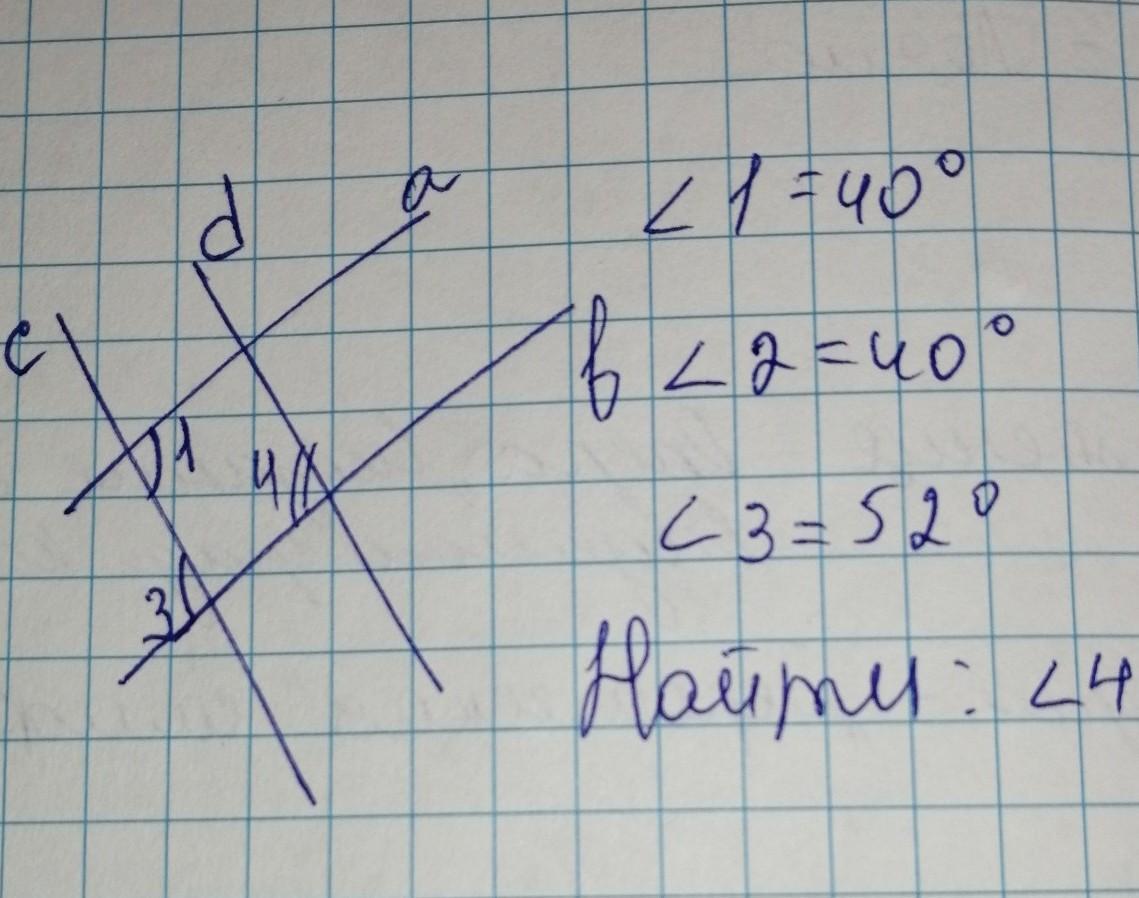 d
a
c
в
1
4
3
∠1=40°
∠2=40°
∠3=52°
Найти: ∠4